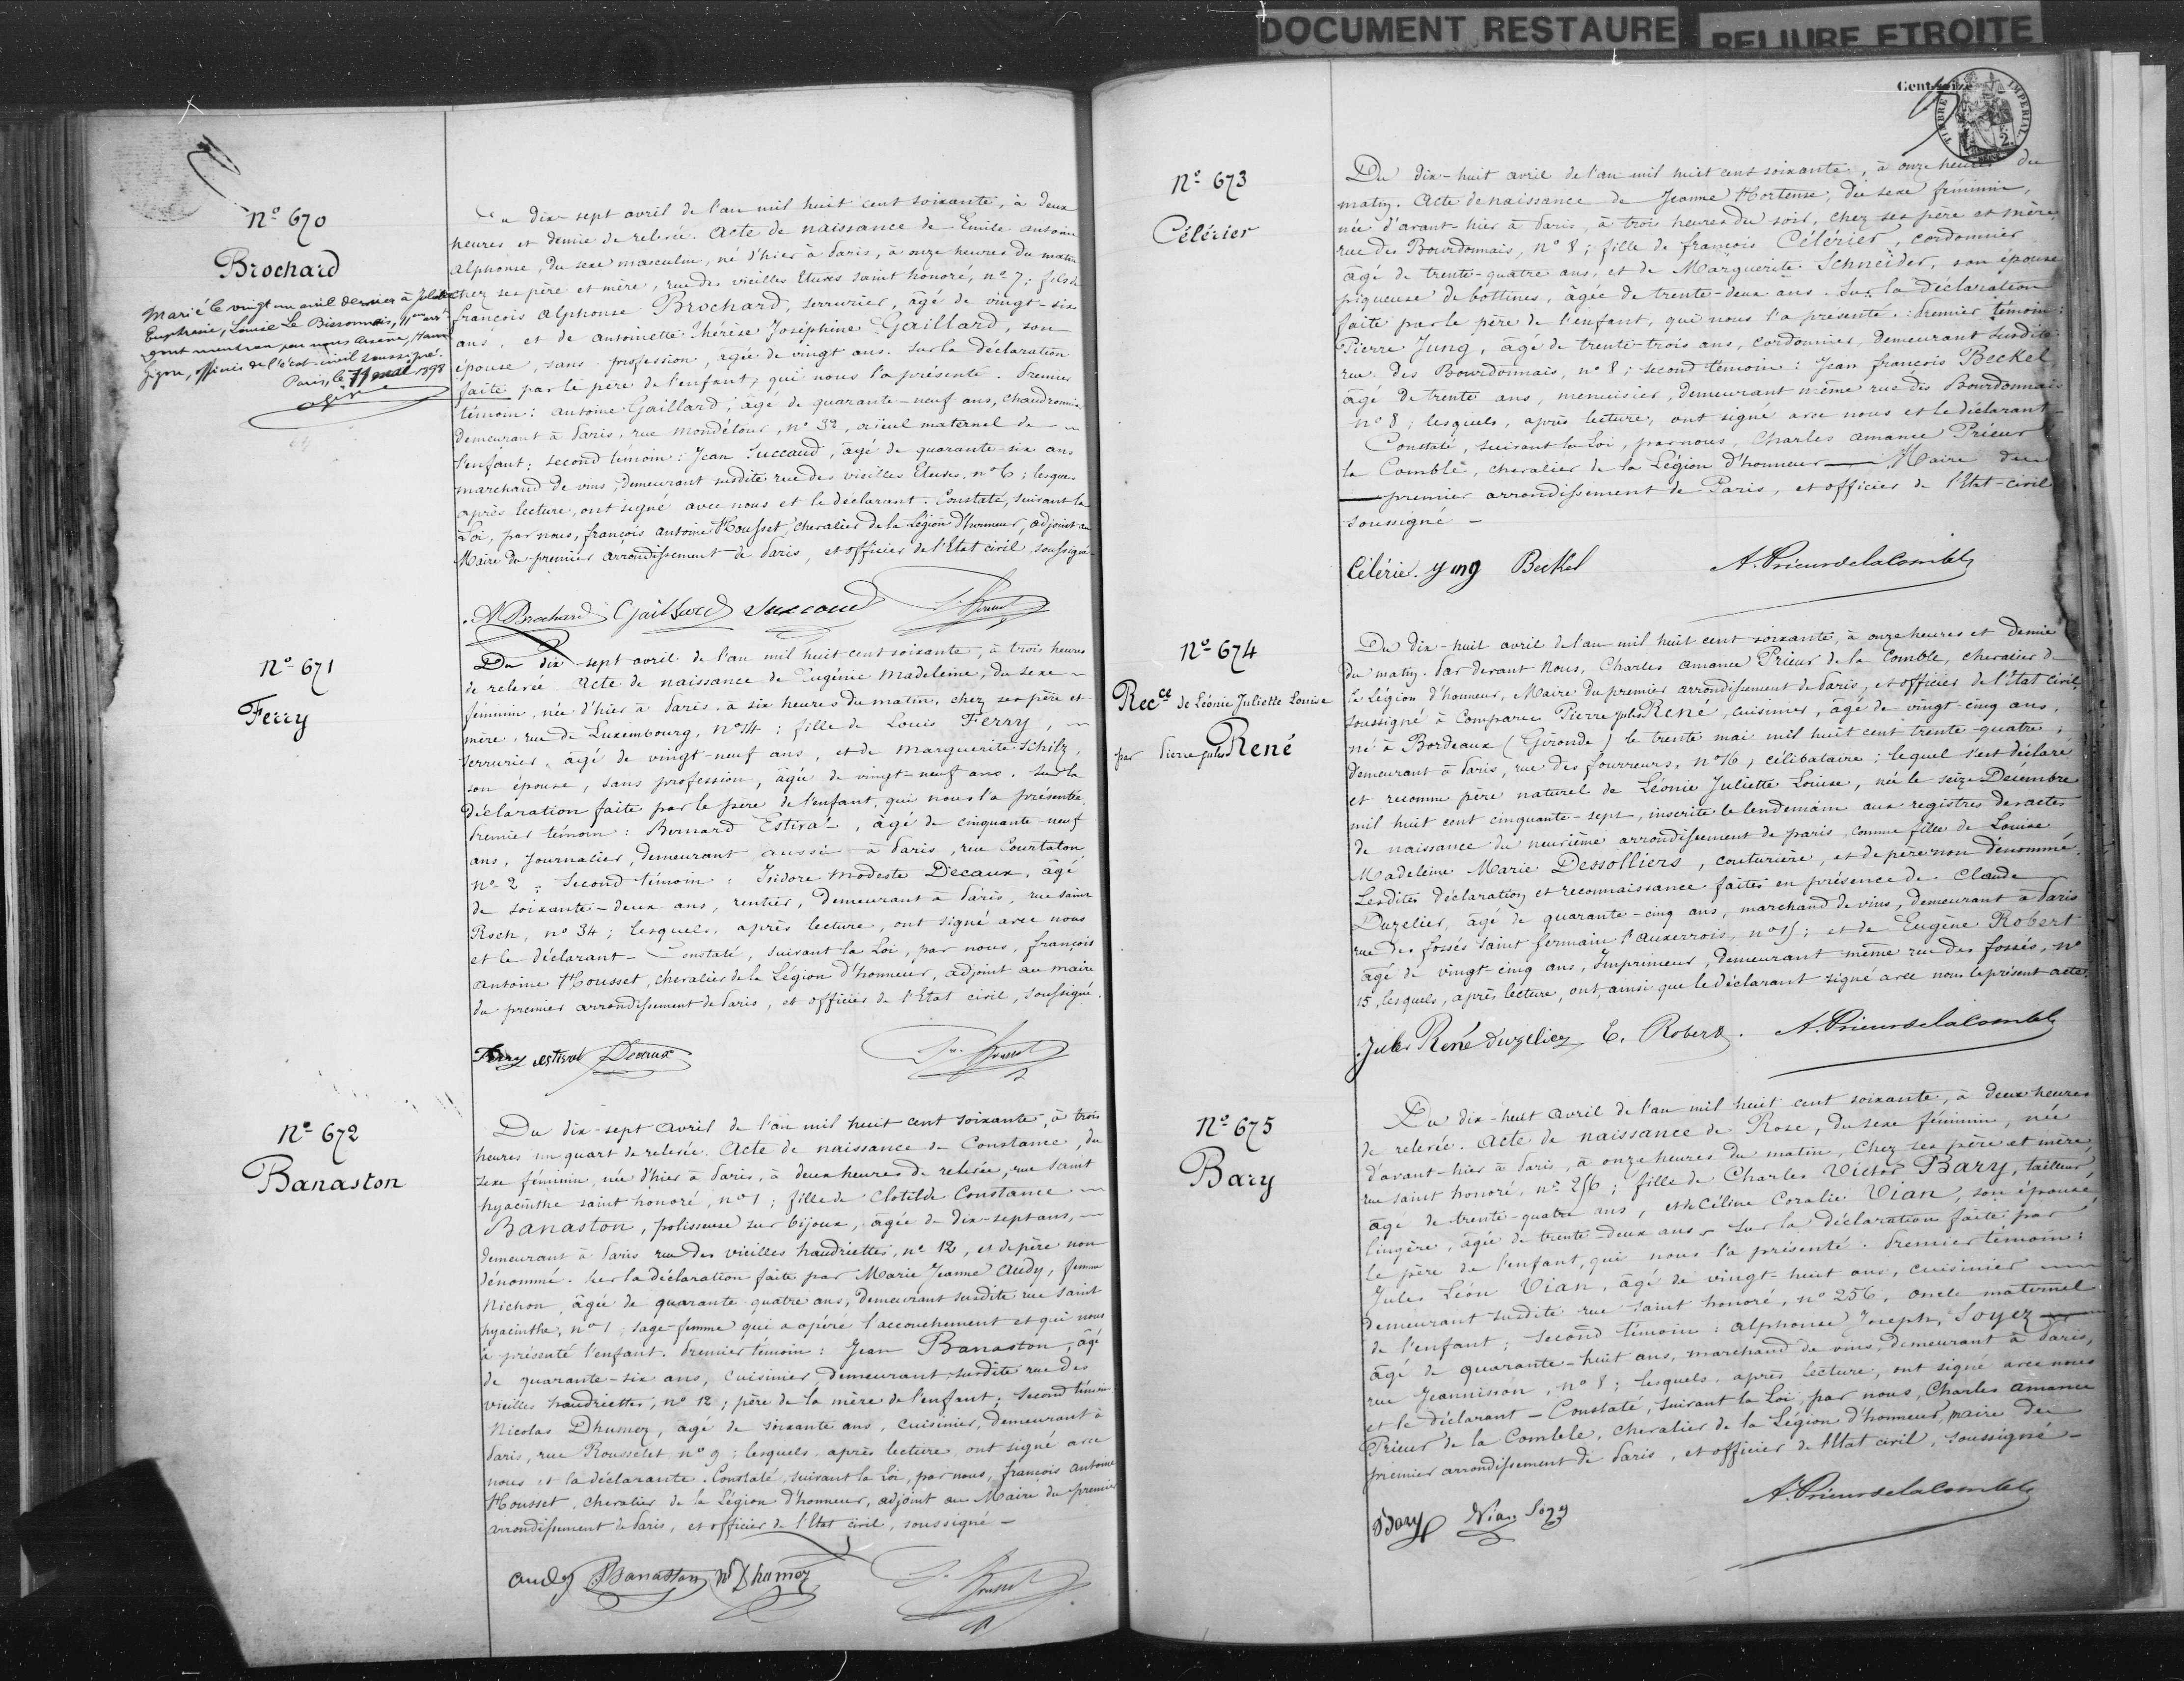 DOCUMENT RESTAURE
RELIURE ETROITE
N° 670
Brochard
Marié le vingt un avril dernier à
Euphrasie, Louise Le Bissonnais, 11eme arrt
par nous
officier de l'état civil soussigné.
Paris, le 11 mai 1898
Du dix-sept avril de l'an mil huit cent soixante, à deux
heures et demie de relevée. Acte de naissance de Emile antoine
alphonse, du sexe masculin, né d'hier à Paris, à onze heures du matin
chez ses père et mère, rue des vieilles Etuves saint honoré, n° 7; fils de
françois alphonse Brochard, serrurier, âgé de vingt-six
ans, et de antoinette Thérèse Joséphine Gaillard, son
épouse, sans profession, âgée de vingt ans. Sur la déclaration
faite par le père de l'enfant, qui nous l'a présenté. Premier
témoin: antoine Gaillard, âgé de quarante-neuf ans, chaudronnier
demeurant à Paris, rue Mondétour, n° 32, aïeul maternel de
l'enfant; second témoin: Jean Succaud, âgé de quarante-six ans
marchand de vins, demeurant susdite rue des vieilles Etuves, n° 6; lesquels
après lecture, ont signé avec nous et le déclarant. Constaté, suivant la
Loi, par nous, françois antoine Housset, chevalier de la Légion d'honneur, adjoint au
Maire du premier arrondissement de Paris, et officier de l'Etat civil, soussigné
A Brochard Gaillard Succaud Housset
N° 671
Ferry
Du dix-sept avril de l'an mil huit cent soixante, à trois heures
de relevée. Acte de naissance de Eugénie Madeleine, du sexe
féminin, née d'hier à Paris, à six heures du matin, chez ses père et
mère, rue de Luxembourg, n° 14; fille de Louis Ferry,
serrurier, âgé de vingt-neuf ans, et de Marguerite Schilz,
son épouse, sans profession, âgée de vingt-neuf ans. Sur la
déclaration faite par le père de l'enfant, qui nous l'a présentée.
Premier témoin: Bernard Estival, âgé de cinquante-neuf
ans, Journalier, demeurant aussi à Paris, rue Courtalon
n° 2; Second témoin: Isidore Modeste Decaux, âgé
de soixante-deux ans, rentier, demeurant à Paris, rue saint
Roch, n° 34; lesquels, après lecture, ont signé avec nous
et le déclarant - Constaté, suivant la Loi, par nous, françois
Antoine Housset, chevalier de la Légion d'honneur, adjoint au maire
du premier arrondissement de Paris, et officier de l'Etat civil, soussigné.
Ferry estival Decaux Housset
N° 672
Banaston
Du dix-sept avril de l'an mil huit cent soixante, à trois
heures un quart de relevée. Acte de naissance de Constance, du
sexe féminin, née d'hier à Paris, à deux heures de relevée, rue saint
hyacinthe saint honoré, n° 1; fille de Clotilde Constance
Banaston, polisseuse sur bijoux, âgée de dix-sept ans,
demeurant à Paris rue des vieilles haudriettes, n° 12, et de père non
dénommé. Sur la déclaration faite par Marie Jeanne Audy, femme
Nichon, âgée de quarante quatre ans, demeurant susdite rue saint
hyacinthe, n° 1, sage-femme qui a opéré l'accouchement et qui nous
a présenté l'enfant. Premier témoin: Jean Banaston, âgé
de quarante-six ans, cuisinier demeurant susdite rue des
vieilles haudriettes, n° 12, père de la mère de l'enfant; second témoin
Nicolas Dhumez, âgé de soixante ans, cuisinier, demeurant à
Paris, rue Rousselet n° 9; lesquels, après lecture, ont signé avec
nous et la déclarante. Constaté, suivant la Loi, par nous, françois Antoine
Housset, chevalier de la Légion d'honneur, adjoint au Maire du premier
arrondissement de Paris, et officier de l'Etat civil, soussigné -
audy Banaston N Dhumez Housset
Cent
TIMBRE IMPERIAL
2
N° 673
Célérier
Du dix-huit avril de l'an mil huit cent soixante, à onze heures du
matin. Acte de naissance de Jeanne Hortense, du sexe féminin,
née d'avant-hier à Paris, à trois heures du soir, chez ses père et mère
rue des Bourdonnais, n° 8; fille de françois Célérier, cordonnier
âgé de trente-quatre ans, et de Marguerite Schneider, son épouse
piqueuse de bottines, âgée de trente-deux ans. Sur la déclaration
faite par le père de l'enfant, qui nous l'a présenté. Premier témoin:
Pierre Jung, âgé de trente-trois ans, cordonnier, demeurant susdite
rue des Bourdonnais, n° 8; second témoin: Jean françois Beckel
âgé de trente ans, menuisier, demeurant même rue des Bourdonnais
n° 8; lesquels, après lecture, ont signé avec nous et le déclarant -
Constaté, suivant la Loi, par nous, Charles amance Prieur
la Comble, chevalier de la Légion d'honneur — Maire du
— premier arrondissement de Paris, et officier de l'Etat-civil
soussigné -
Célérier. yung Beckel A. Prieur de la Comble
N° 674
Recce de Léonie Juliette Louise
par Pierre jules René
Du dix-huit avril de l'an mil huit cent soixante, à onze heures et demie
du matin. Par devant Nous, Charles amance Prieur de la Comble, chevalier de
la Légion d'honneur, Maire du premier arrondissement de Paris, et officier de l'Etat civil,
soussigné à Comparu Pierre jules René, cuisinier, âgé de vingt-cinq ans,
né à Bordeaux (Gironde) le trente mai mil huit cent trente-quatre;
demeurant à Paris, rue des fourreurs, n° 16, célibataire; lequel s'est déclaré
et reconnu père naturel de Léonie Juliette Louise, née le seize Décembre
mil huit cent cinquante-sept, inscrite le lendemain aux registres des actes
de naissance du neuvième arrondissement de paris, comme fille de Louise
Madeleine Marie Dessolliers, couturière, et de père non dénommé.
Lesdites déclaration et reconnaissance faites en présence de Claude
Duzelier, âgé de quarante-cinq ans, marchand de vins, demeurant à Paris
rue des fossés saint germain l'auxerrois, n° 15; et de Eugène Robert
âgé de vingt-cinq ans, Imprimeur, demeurant même rue des fossés, n°
15, lesquels, après lecture, ont, ainsi que le déclarant signé avec nous le présent acte.
Jules René Duzelier E. Robert. A. Prieur de la Comble
N° 675
Bary
Du dix-huit avril de l'an mil huit cent soixante, à deux heures
de relevée. Acte de naissance de Rose, du sexe féminin, née
d'avant-hier à Paris, à onze heures du matin, chez ses père et mère
rue saint honoré, n° 256; fille de Charles Victor Bary, tailleur,
âgé de trente-quatre ans, et de Céline Coralie Vian, son épouse,
lingère, âgée de trente-deux ans - Sur la déclaration faite par
le père de l'enfant, qui nous l'a présenté. Premier témoin:
Jules Léon Vian, âgé de vingt-huit ans, cuisinier
demeurant susdite rue saint honoré, n° 256, oncle maternel
de l'enfant; second témoin: alphonse Joseph Soyez —
âgé de quarante-huit ans, marchand de vins, demeurant à Paris,
rue Jeannisson, n° 8; lesquels, après lecture, ont signé avec nous
et le déclarant - Constaté, suivant la Loi, par nous, Charles amance
Prieur de la Comble, chevalier de la Légion d'honneur, maire du
premier arrondissement de Paris, et officier de l'Etat civil, soussigné -
Bary Vian Soyez A. Prieur de la Comble